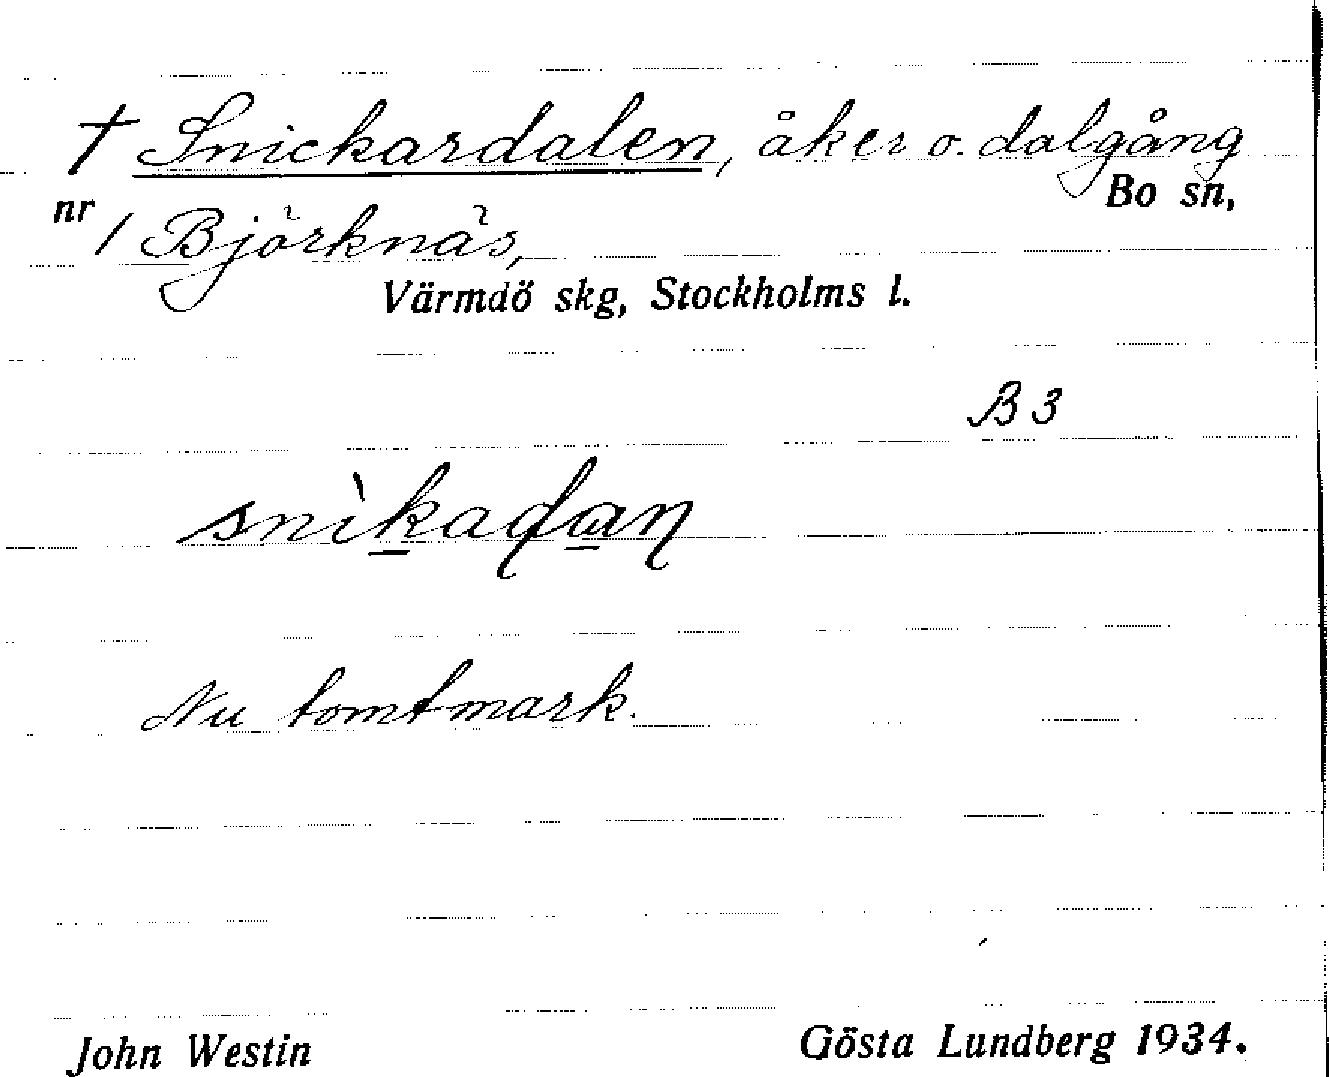 † Snickardalen, åker o. dalgång
Bo sn,
nr 1 Björknäs,
Värmdö skg, Stockholms l.
B 3
snìkadan
Nu tomtmark.
John Westin
Gösta Lundberg 1934.